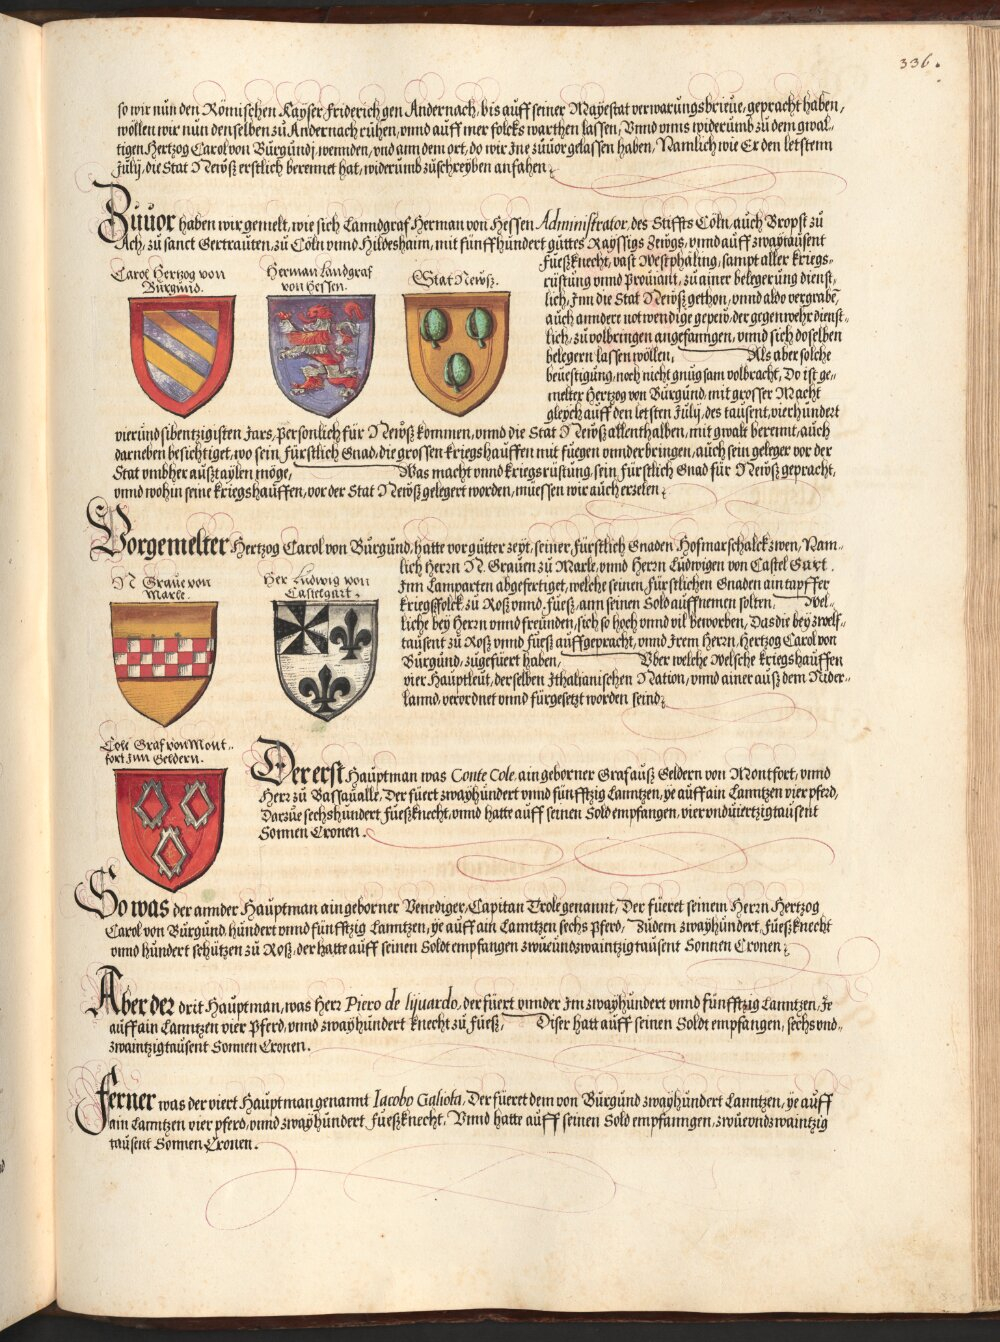 336.
so wir nun den Römischen Kayser Friderich gen Andernach, bis auff seiner Mayestat verwarungsbrieue, gepracht haben,
wöllen wir nun denselben zu Andernach rühen, vnnd auff mer folcks warthen lassen, Vnnd vnns widerumb zu dem gwal-
tigen Hertzog Carol von Burgundj, wennden, vnd ann dem ort, do wir Jne züuor gelassen haben, Namlich wie Er den letstenn
Julij, die Stat Newsß erstlich berennet hat, widerumb zuschreyben anfahen.
Züuor haben wir gemelt, wie sich Lanndgraf Herman von Hessen Administrator, des Stiffts Cöln, auch Bropst zu
Ach, zu sanct Gertrauten, zu Cöln vnnd Hildeshaim, mit fünffhündert guttes Rayssigs Zeugs, vnnd auff zwaytausent
Carol Hertzog von
Burgund.
Herman Landgraf
von Hessen.
Stat Newsß.
Füeßknecht, vast Westphäling, sampt aller kriegs-
rüstung vnnd Prouiant, zu ainer belegerung dienst-
lich, Jnn die Stat Newsß gethon, vnnd aldo vergrabe,
auch anndere notwendige gepew, der gegenwehr dienst-
lich, zu volbringen angefanngen, vnnd sich doselben
belegern lassen wöllen, Als aber solche
beuestigung, noch nicht gnugsam volbracht, Do ist ge-
melter Hertzog von Burgund, mit grosser Macht
gleych auff den letsten Julij, des tausent, vierhundert
vierundsibentzigisten Jars, Persönlich für Newsß kommen, vnnd die Stat Newsß allenthalben, mit gwalt berennt, auch
darneben besichtiget, wo sein Fürstlich Gnad, die grossen kriegshauffen mit fuegen vnnderbringen, auch sein geleger vor der
Stat vmbher außtaylen möge, Was macht vnnd kriegsrüstung, sein Fürstlich Gnad für Newsß gepracht,
vnnd wohin seine kriegshauffen, vor der Stat Newsß gelegert worden, müessen wir auch erzelen.
Vorgemelter Hertzog Carol von Burgund, hatte vor gutter zeyt, seiner Fürstlich Gnaden Hofmarschalck zwen, Nam-
lich Herrn N. Grauen zu Marle, vnnd Herrn Ludwigen von Castel Gurt.
N Graue von
Marle.
Her Ludwig von
Castelgurt.
Jnn Lamparten abgefertiget, welche seinen Fürstlichen Gnaden ain tapffer
kriegsfolck, zu Roß vnnd Füeß, ann seinen Sold auffnemen solten, Wel-
liche bey Herrn vnnd freunden, sich so hoch vnnd vil beworben, Das die bey zwelf-
tausent zu Roß vnnd Füeß auffgepracht, vnnd Jrem Herrn, Hertzog Carol von
Burgund, zugefuert haben, Vber welche Welsche kriegshauffen
vier Hauptleut, derselben Jthalianischen Nation, vnnd ainer auß dem Nider-
lannd, verordnet vnnd fürgesetzt worden seind.
Cole Graf von Mont-
fort Jnn Geldern.
Der erst Hauptman was Conte Cole, ain geborner Graf auß Geldern von Montfort, vnnd
Herr zu Vassaualle, Der fuert zwayhundert vnnd fünfftzig Lanntzen, ye auff ain Lanntzen vier pferd,
Darzue sechshundert Füeßknecht, vnnd hatte auff seinen Sold empfangen, vier vndviertzigtausent
Sonnen Cronen.
So was der annder Hauptman ain geborner Venediger, Capitan Trole genannt, Der fueret seinem Herrn Hertzog
Carol von Burgund, hundert vnnd fünfftzig Lanntzen, ye auff ain Lanntzen sechs Pferd, Zudem zwayhundert, Füeßknecht
vnnd hundert schützen zu Roß, der hatte auff seinen Soldt empfangen zwueundzwaintzigtausent Sonnen Cronen.
Aber der drit Hauptman, was Herr Piero de lijuardo, der fuert vnnder Jm zwayhundert vnnd fünfftzig Lanntzen, Je
auff ain Lanntzen vier Pferd, vnnd zwayhundert knecht zu Füeß, Diser hatt auff seinen Soldt empfangen, sechsvnd-
zwaintzigtausent Sonnen Cronen.
Ferner was der viert Hauptman genannt Iacobo Galiota, Der fueret dem von Burgund zwayhundert Lanntzen, ye auff
ain Lanntzen vier pferd, vnnd zwayhundert Füeßknecht, Vnnd hatte auff seinen Sold empfanngen, zwüevndzwaintzig
tausent Sonnen Cronen.